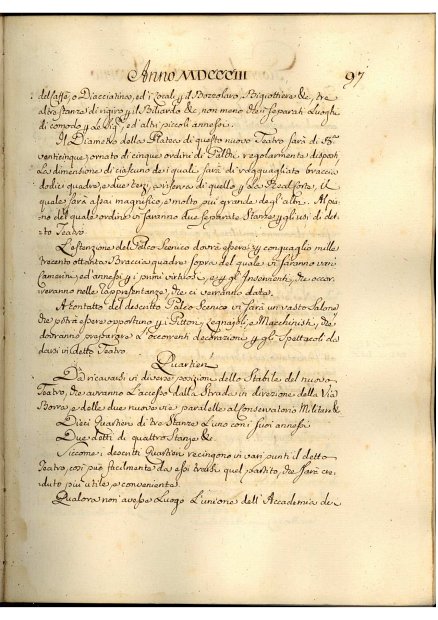 Anno MDCCCIII 97
del Caffè, o Diacciatino, ed i Locali pil Bozzolaro, Bigiottiere &c, tre
altre stanze di rigiro pil Biliardo &c, non meno che i separati Luoghi
di comodo p le Sig.e ed altri piccoli annessi.
Il Diametro della Platea di questo nuovo Teatro sarà di B.a
venticinque, ornato di cinque ordini di Palchi regolarmente disposti
La dimensione di ciascuno de' quali sarà di ragguagliato braccia
dodici quadre, e due terzi, a riserva di quello p La Real Corte, il
quale sarà assai magnifico e molto più grande degl'altri. Al piano
del quale ordine vi saranno due separate Stanze p gli usi di detto
Teatro.
L'estenzione del Palco Scenico dovrà essere p conguaglio mille
trecento ottanta Braccia quadre sopra del quale vi saranno vari
Camerini ed annessi p i primi virtuosi, e p gl'Inservienti, che occorreranno
nelle rappresentanze, che ci verranno date.
A contatto del descritto Palco Scenico vi sarà un vasto Salone
che potrà essere opportuno p i Pittori, Legnajoli, e Macchinisti, che
dovranno preparare L'occorrenti decorazioni p gli Spettacoli da
darsi in detto Teatro
Quartieri
Da ricavarsi in diverse posizioni dello Stabile del nuovo
Teatro, che avranno L'accesso dalla Strada in direzione della Via
Borra, e delle due nuove vie paralelle al Conservatorio Militare &c
Dieci Quartieri di tre Stanze L'uno con i suoi annessi
Due detti di quattro Stanze &c.
Siccome i descritti Quartieri recingono in vari punti il detto
Teatro, così più facilmente da essi trarsi quel partito, che sarà creduto
più utile, e conveniente.
Qualora non avesse Luogo L'unione dell'Accademia dei